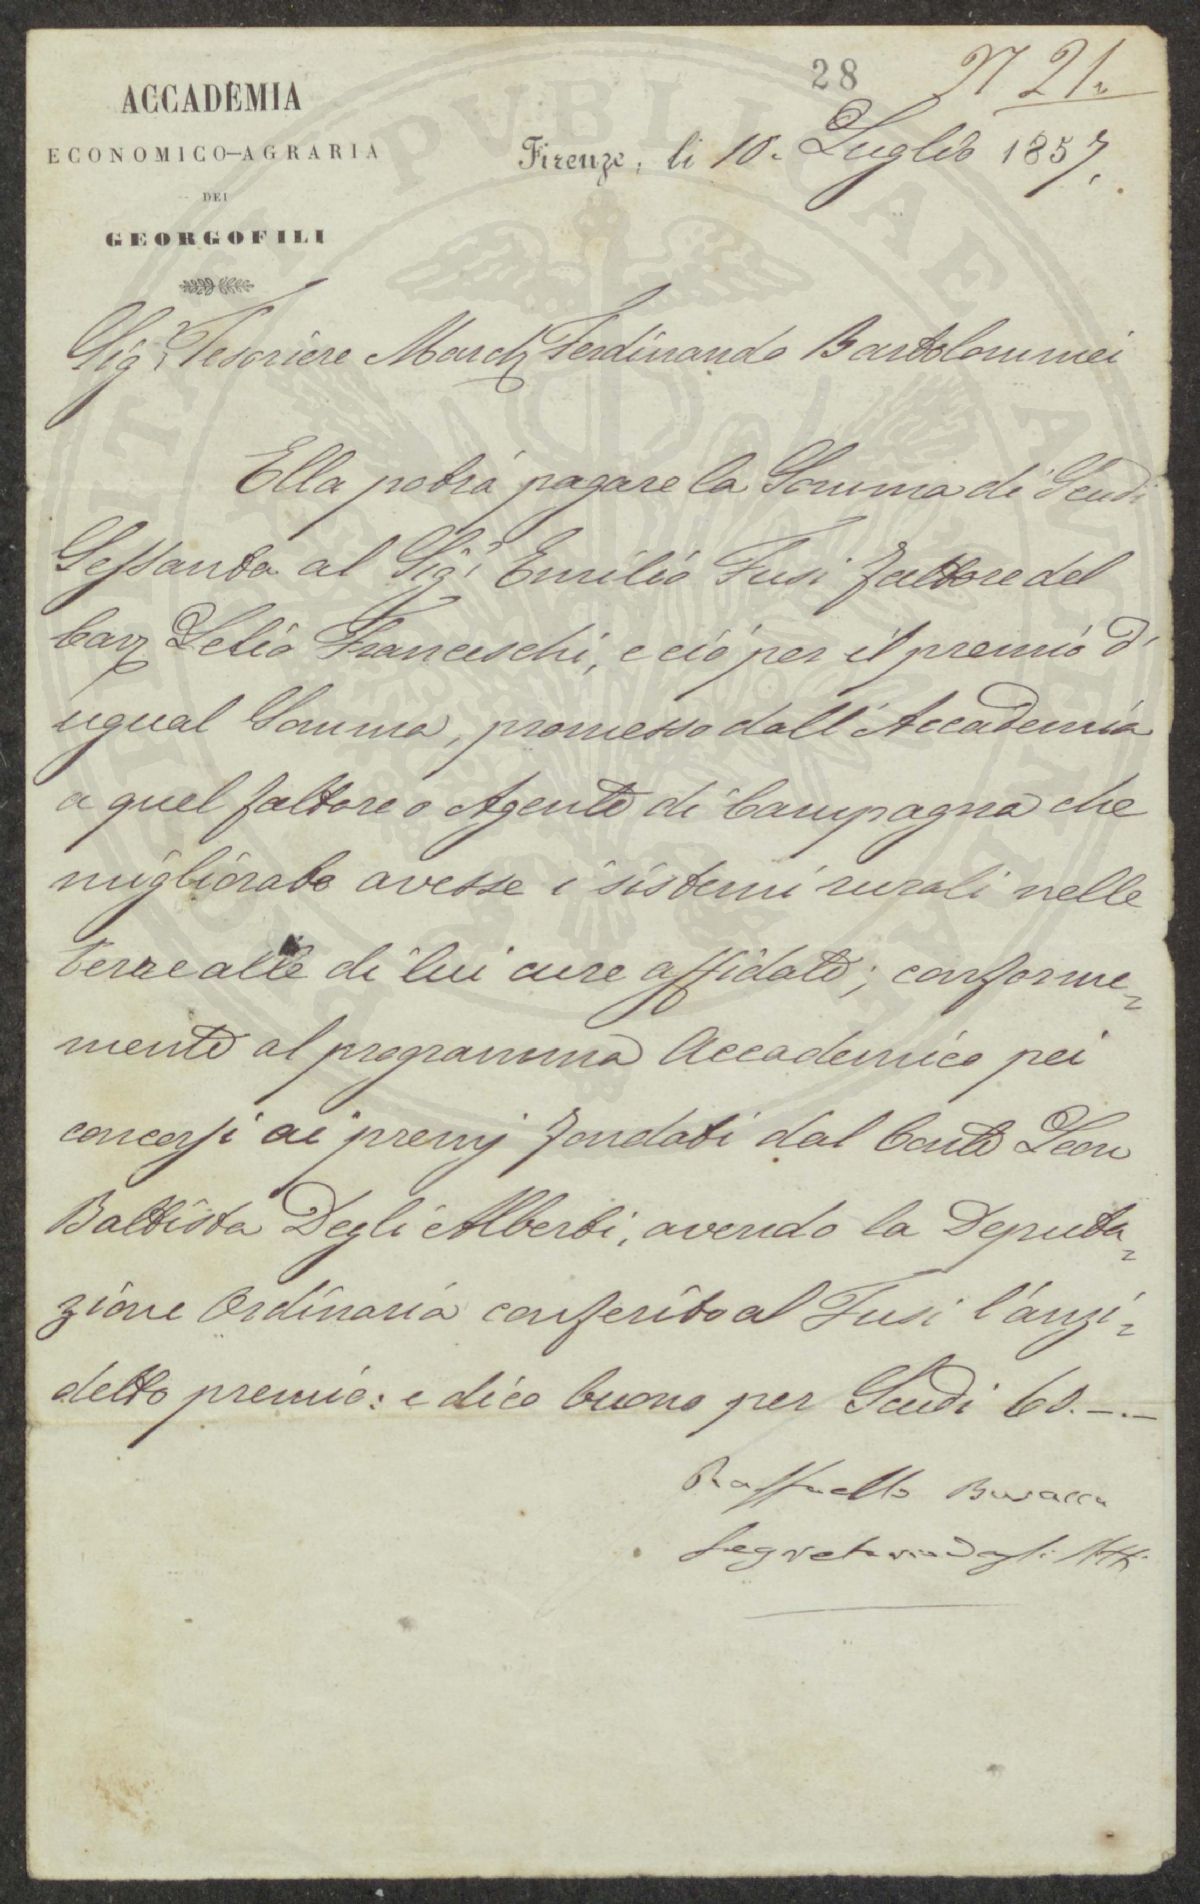 28
N 21.
ACCADEMIA
ECONOMICO-AGRARIA
DEI
GEORGOFILI
Firenze, li 10. Luglio 1857.
Sig.r Tesoriere March Ferdinando Bartolommei
Ella potrà pagare la Somma di Scudi
Sessanta al Sig.r Emilio Fusi fattore del
Cav Lelio Franceschi, e ciò per il premio d'
ugual Somma, promesso dall'Accademia
a quel fattore o Agente di Campagna che
migliorato avesse i sistemi rurali nelle
terre alle di lui cure affidate; conforme=
mente al programma Accademico pei
concorsi ai premj fondati dal Conte Leon
Battista Degli Alberti, avendo la Deputa=
zione Ordinaria conferito al Fusi l'anzi=
detto premio: e dico buono per Scudi 60.-.-
Raffaello Busacca
Segretario degli Atti